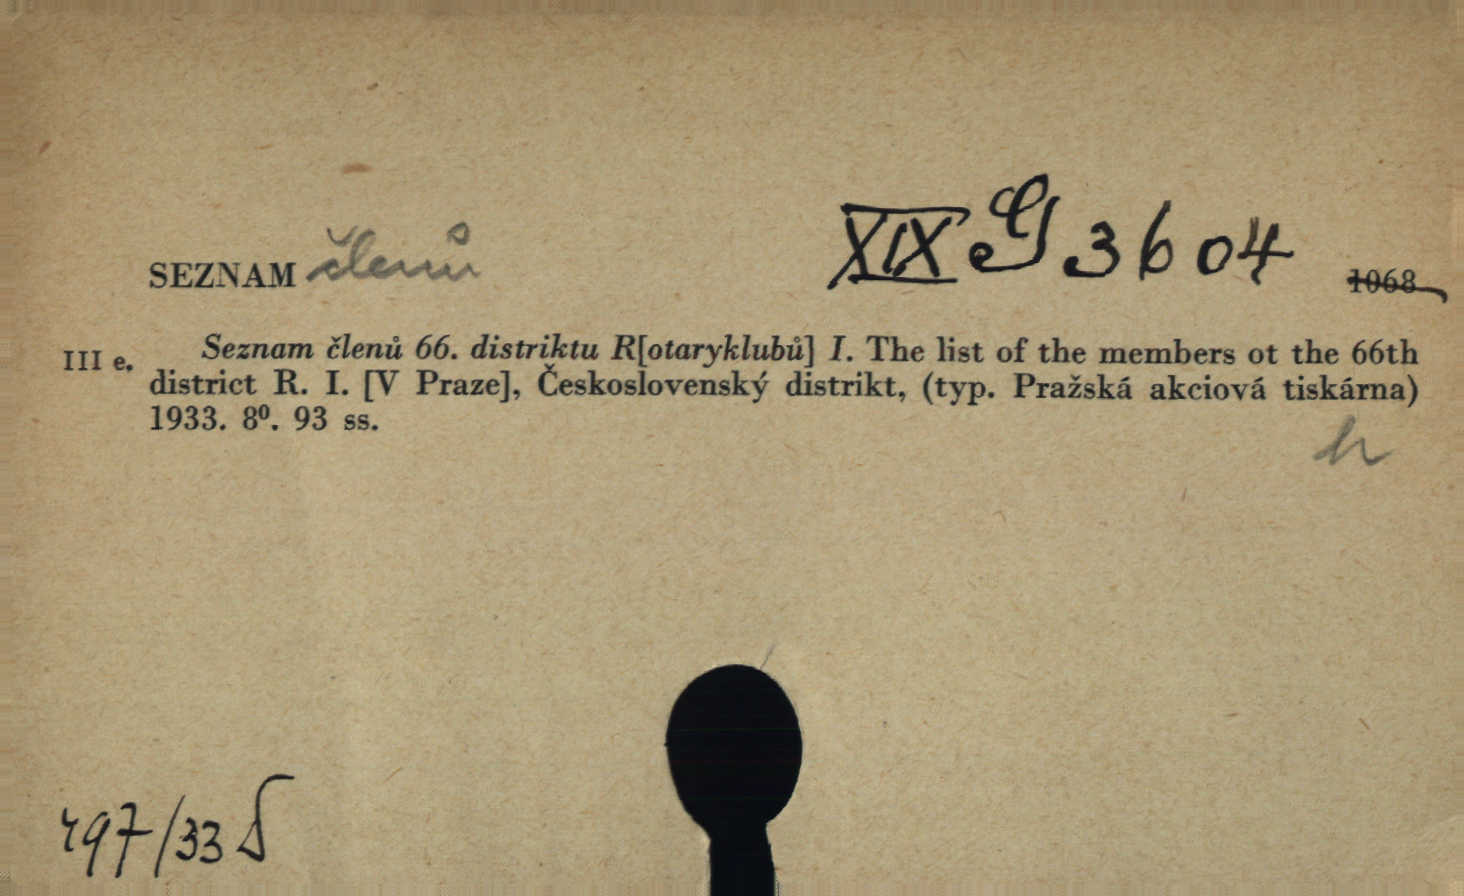 SEZNAM členů XIX G 3604 1068
III e. Seznam členů 66. distriktu R[otaryklubů] I. The list of the members ot the 66th
district R. I. [V Praze], Československý distrikt, (typ. Pražská akciová tiskárna)
1933. 8⁰. 93 ss.
497/33